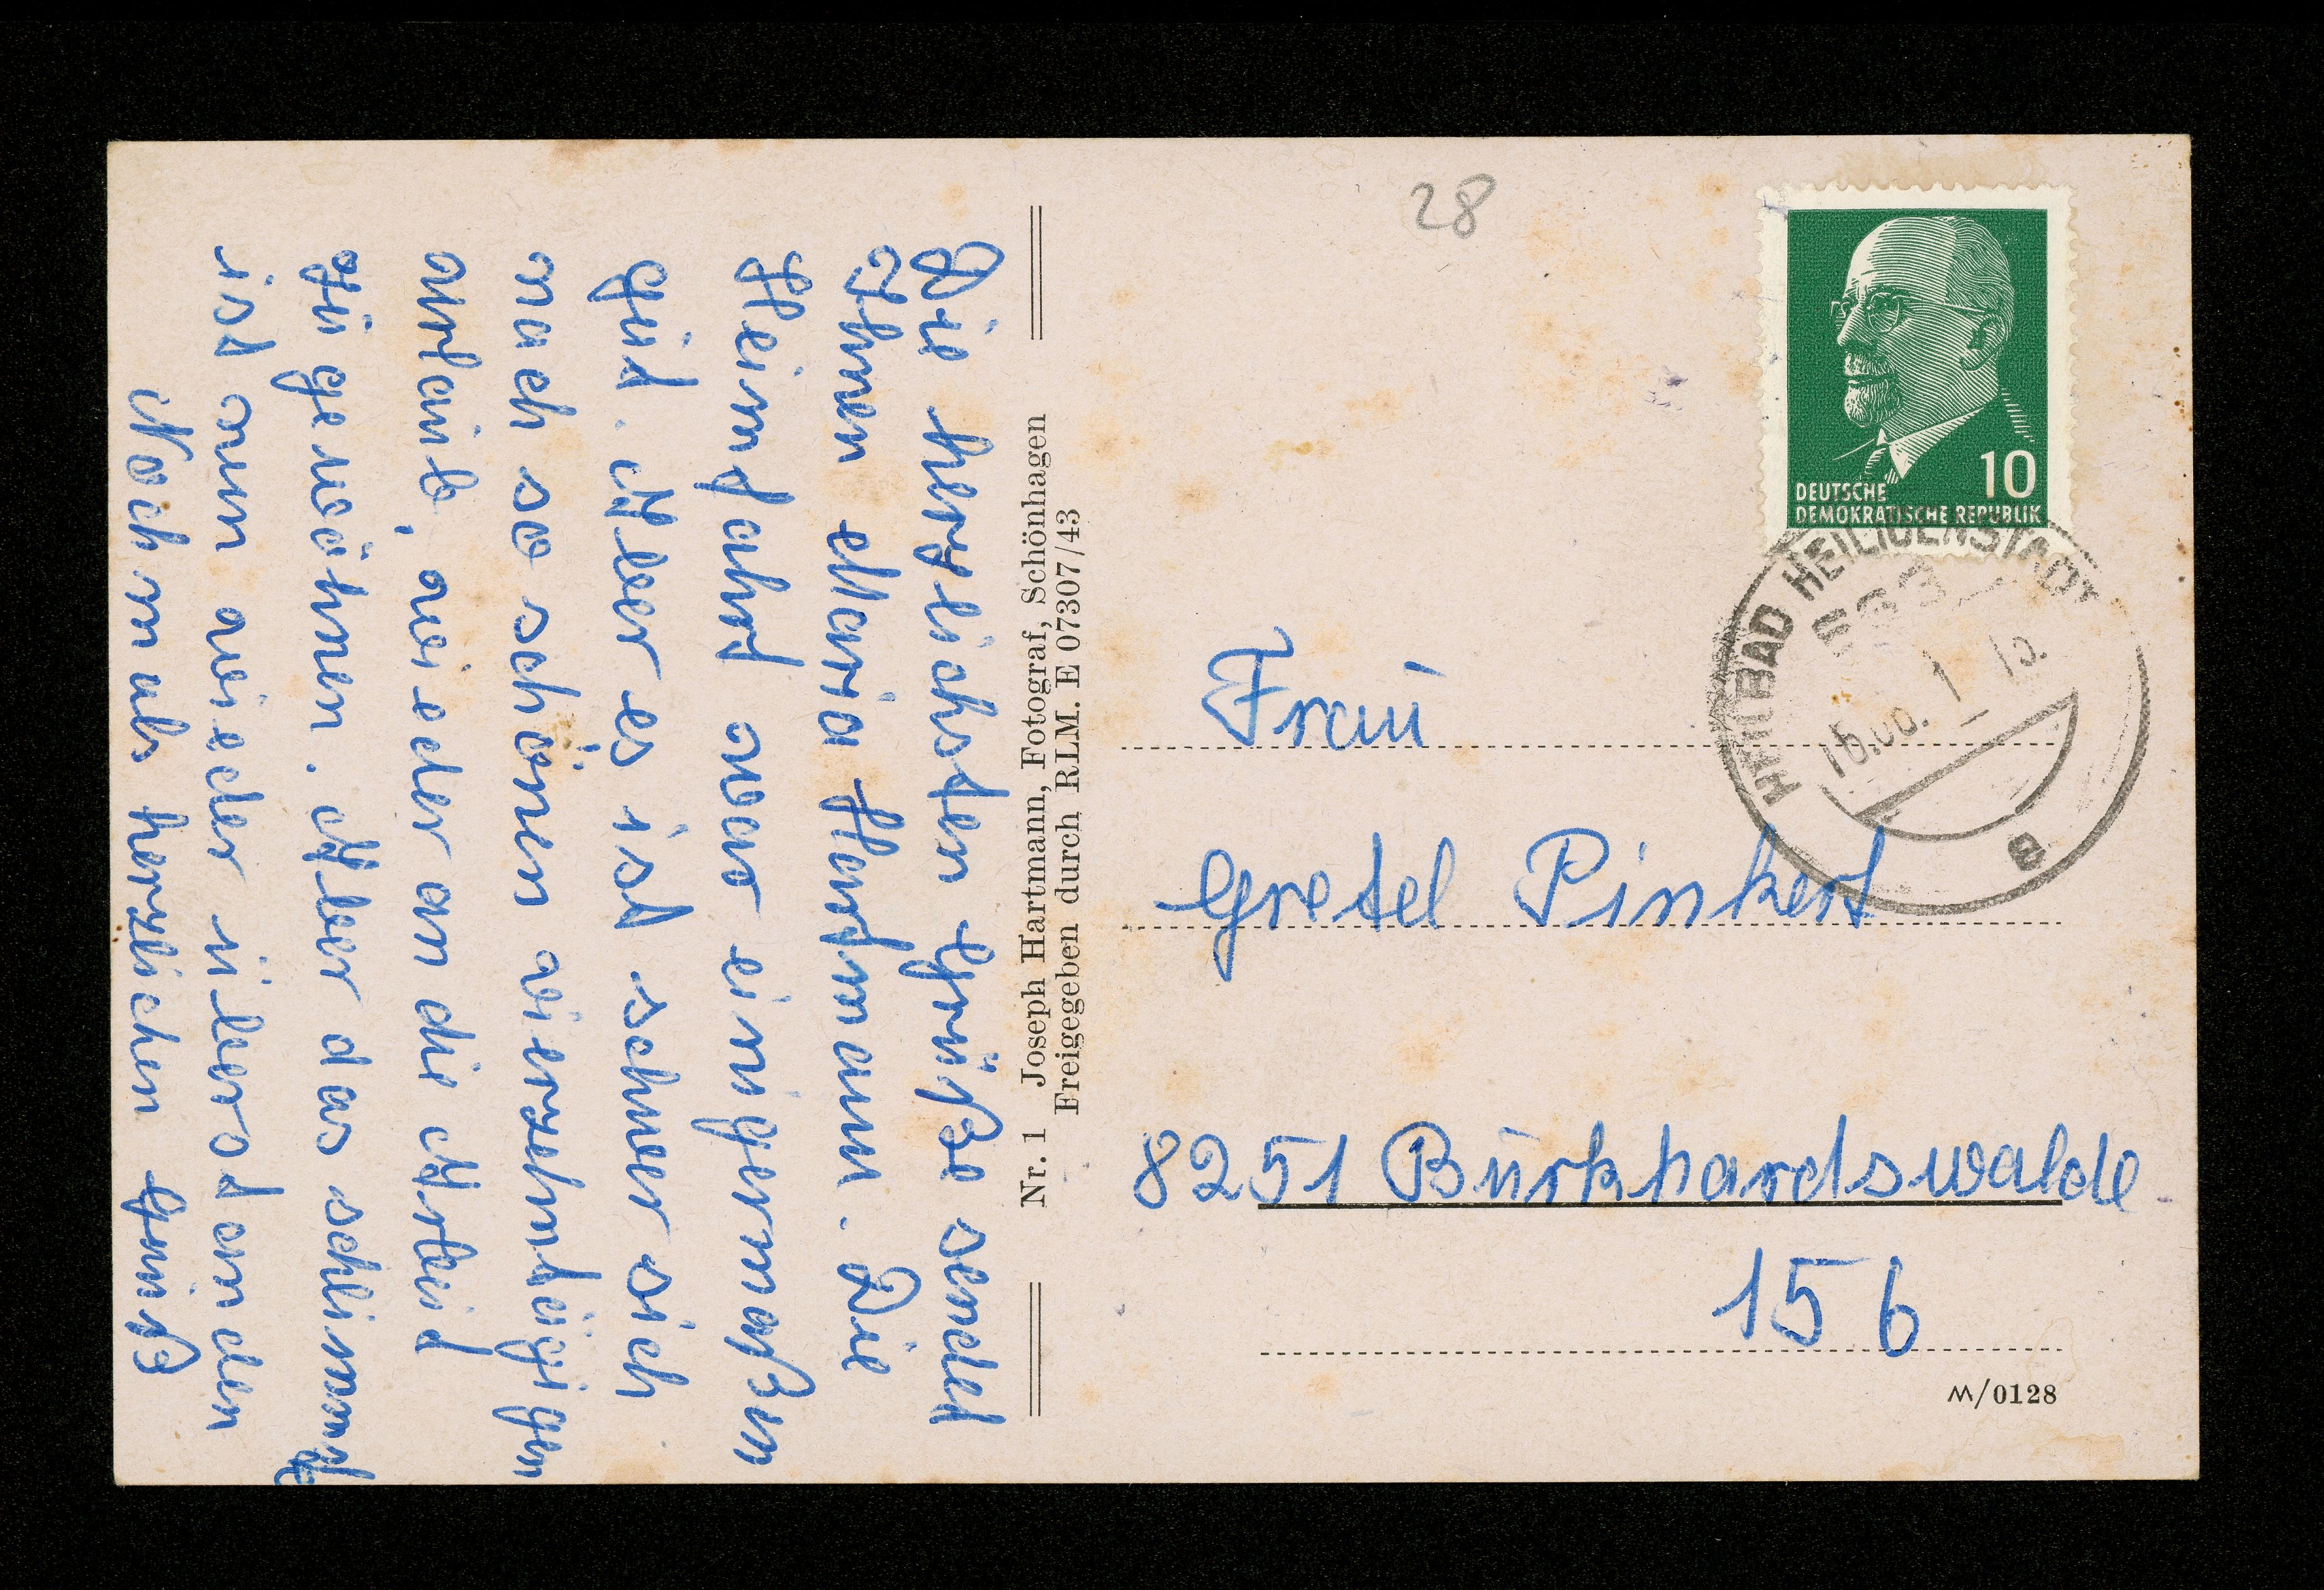 Die herzlichsten Grüße sendet
Ihnen Maria Hartmann. Die
Heimfahrt war einigermaßen
gut. Aber es ist schwer sich
nach so schönen vierzehntägigen
urlaub, wieder an die Arbeit
zu gewöhnen. Aber das schlimmste
ist nun wieder überstanden
Nochmals herzlichen Gruß
Nr. 1 Joseph Hartmann, Fotograf, Schönhagen
Freigegeben durch RLM. E 07307/43
28
10
DEUTSCHE
DEMOKRATISCHE REPUBLIK
HEILBAD HEILIGENSTADT
a
Frau
Gretel Pinkert
8251 Burkhardswalde
156
M/0128